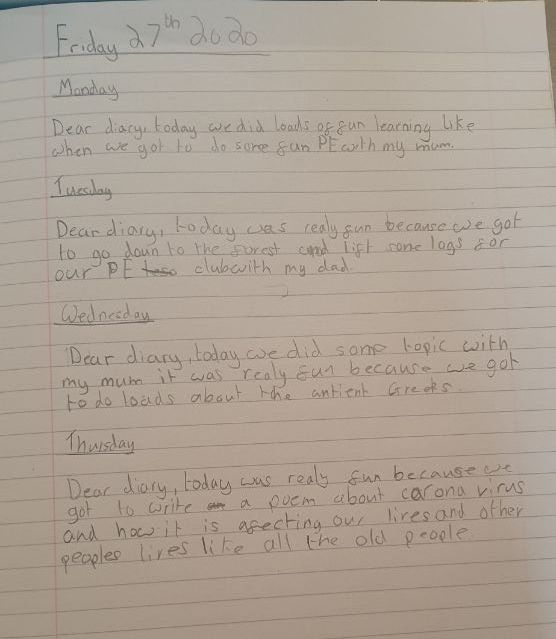 Friday 27th 2020
Monday
Dear diary, today we did loads of fun learning like
when we got to do some fun PE with my mum.
Tuesday
Dear diary, today was realy fun because we got
to go down to the forest and lift some logs for
our PE club with my dad.
Wednesday
Dear diary, today we did some topic with
my mum it was realy fun because we got
to do loads about the antient Greeks.
Thursday
Dear diary, today was realy fun because we
got to write a poem about carona virus
and how it is afecting our lives and other
peoples lives like all the old people.